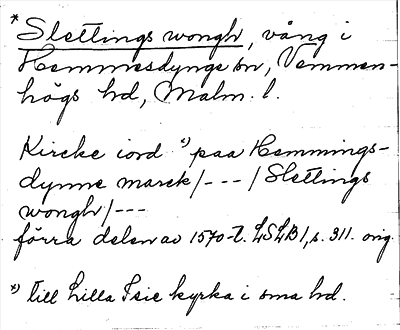 * Slettings wongh, vång i
Hemmesdynge sn, Vemmen-
högs hd, Malm. l.
Kircke iord *) paa Hemmings-
dynne marck /--- / Slettings
wongh /---
förra delen av 1570-t. LSLB 1, s. 311. orig.
*) till Lilla Isie kyrka i sma hd.